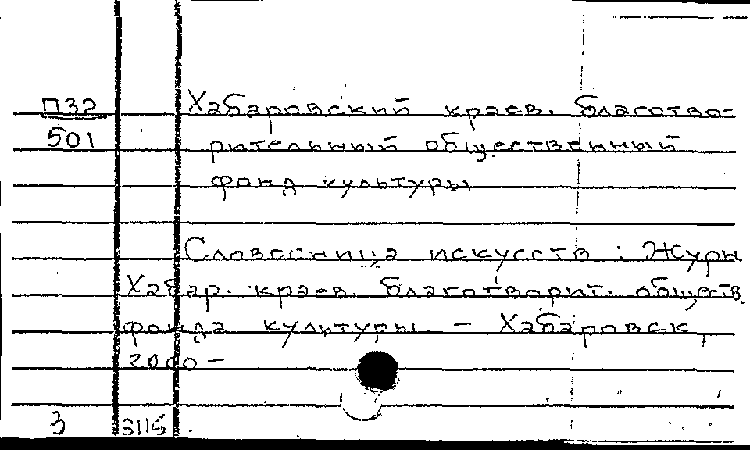 П32
501
Хабаровский краев. благотво-
рительный общественный
фонд культуры
Словесница искусств : Журн
Хабар. краев. благотворит. обществ.
фонда культуры. – Хабаровск,
2000 –
3 3115